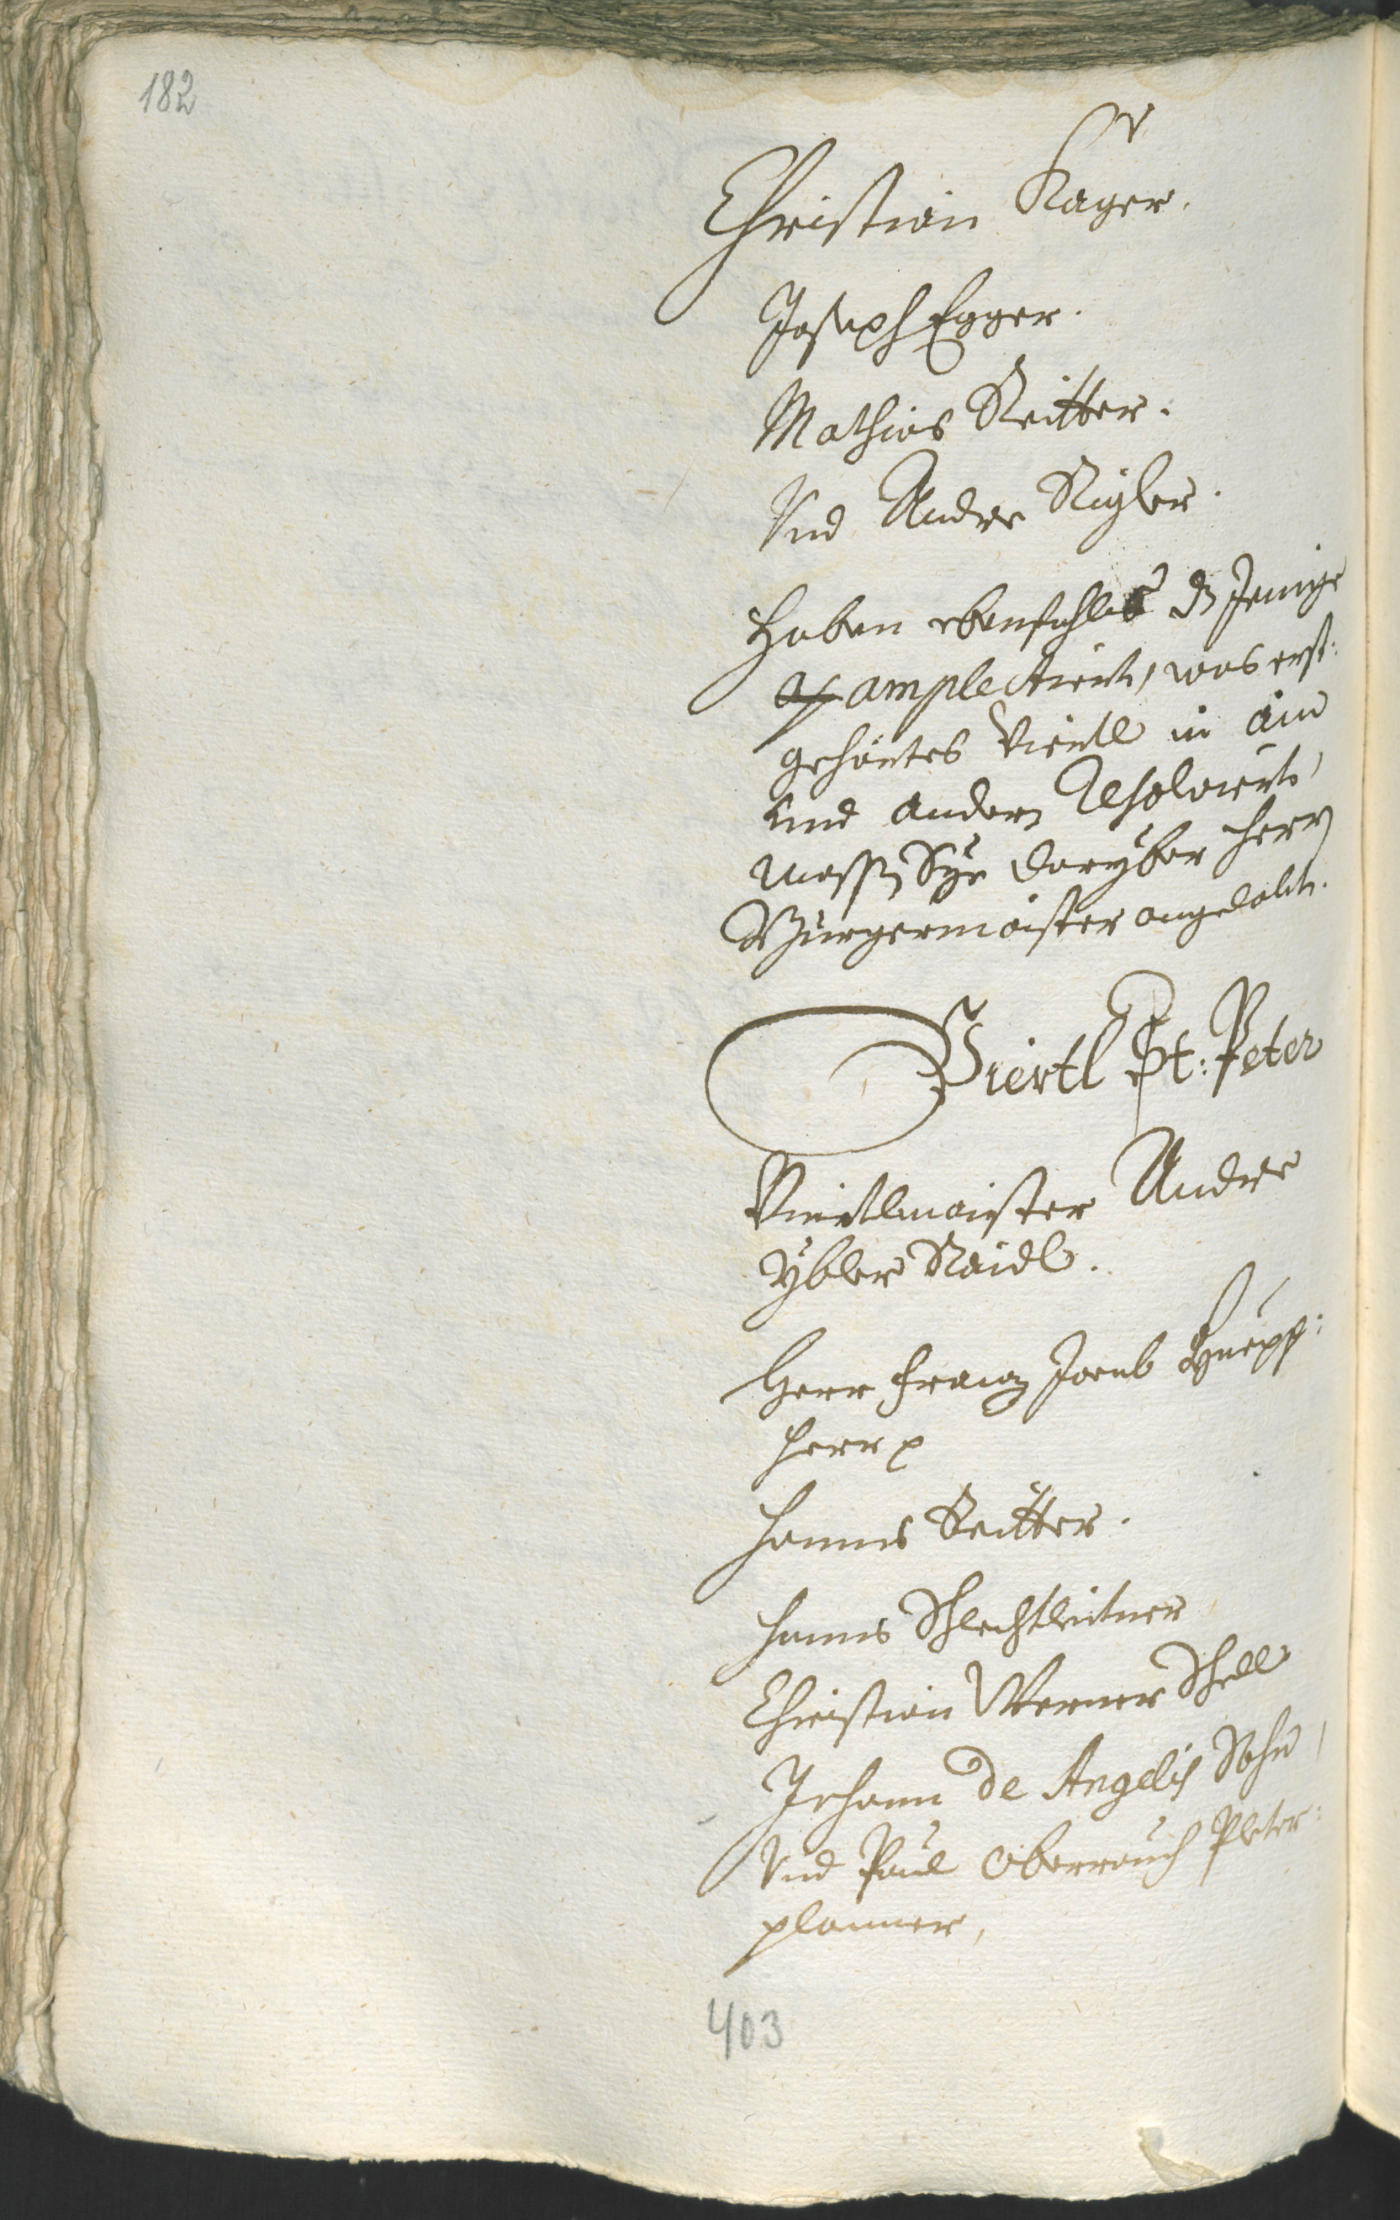 182
Christian Kager.
Joseph Egger.
Mathias Reitter.
Vnd Andre Rigler.
Haben ebenfahls dz Jenige
amplectiert, was erst:
gehörtes Viertl in ain
vnd andern Resolviert,
massen Sye darüber Herrn
Burgermaister angelobt.
Viertl St: Peter
Viertlmaister Andre
Ybler Saidl.
Herr Franz Jacob
Herr p
Hanns Reitter.
Hanns Schlechtleitner
Christian Werner Schell
Johann de Angelis Sohn,
Vnd Paul Oberrauch Peter:
planner,
403